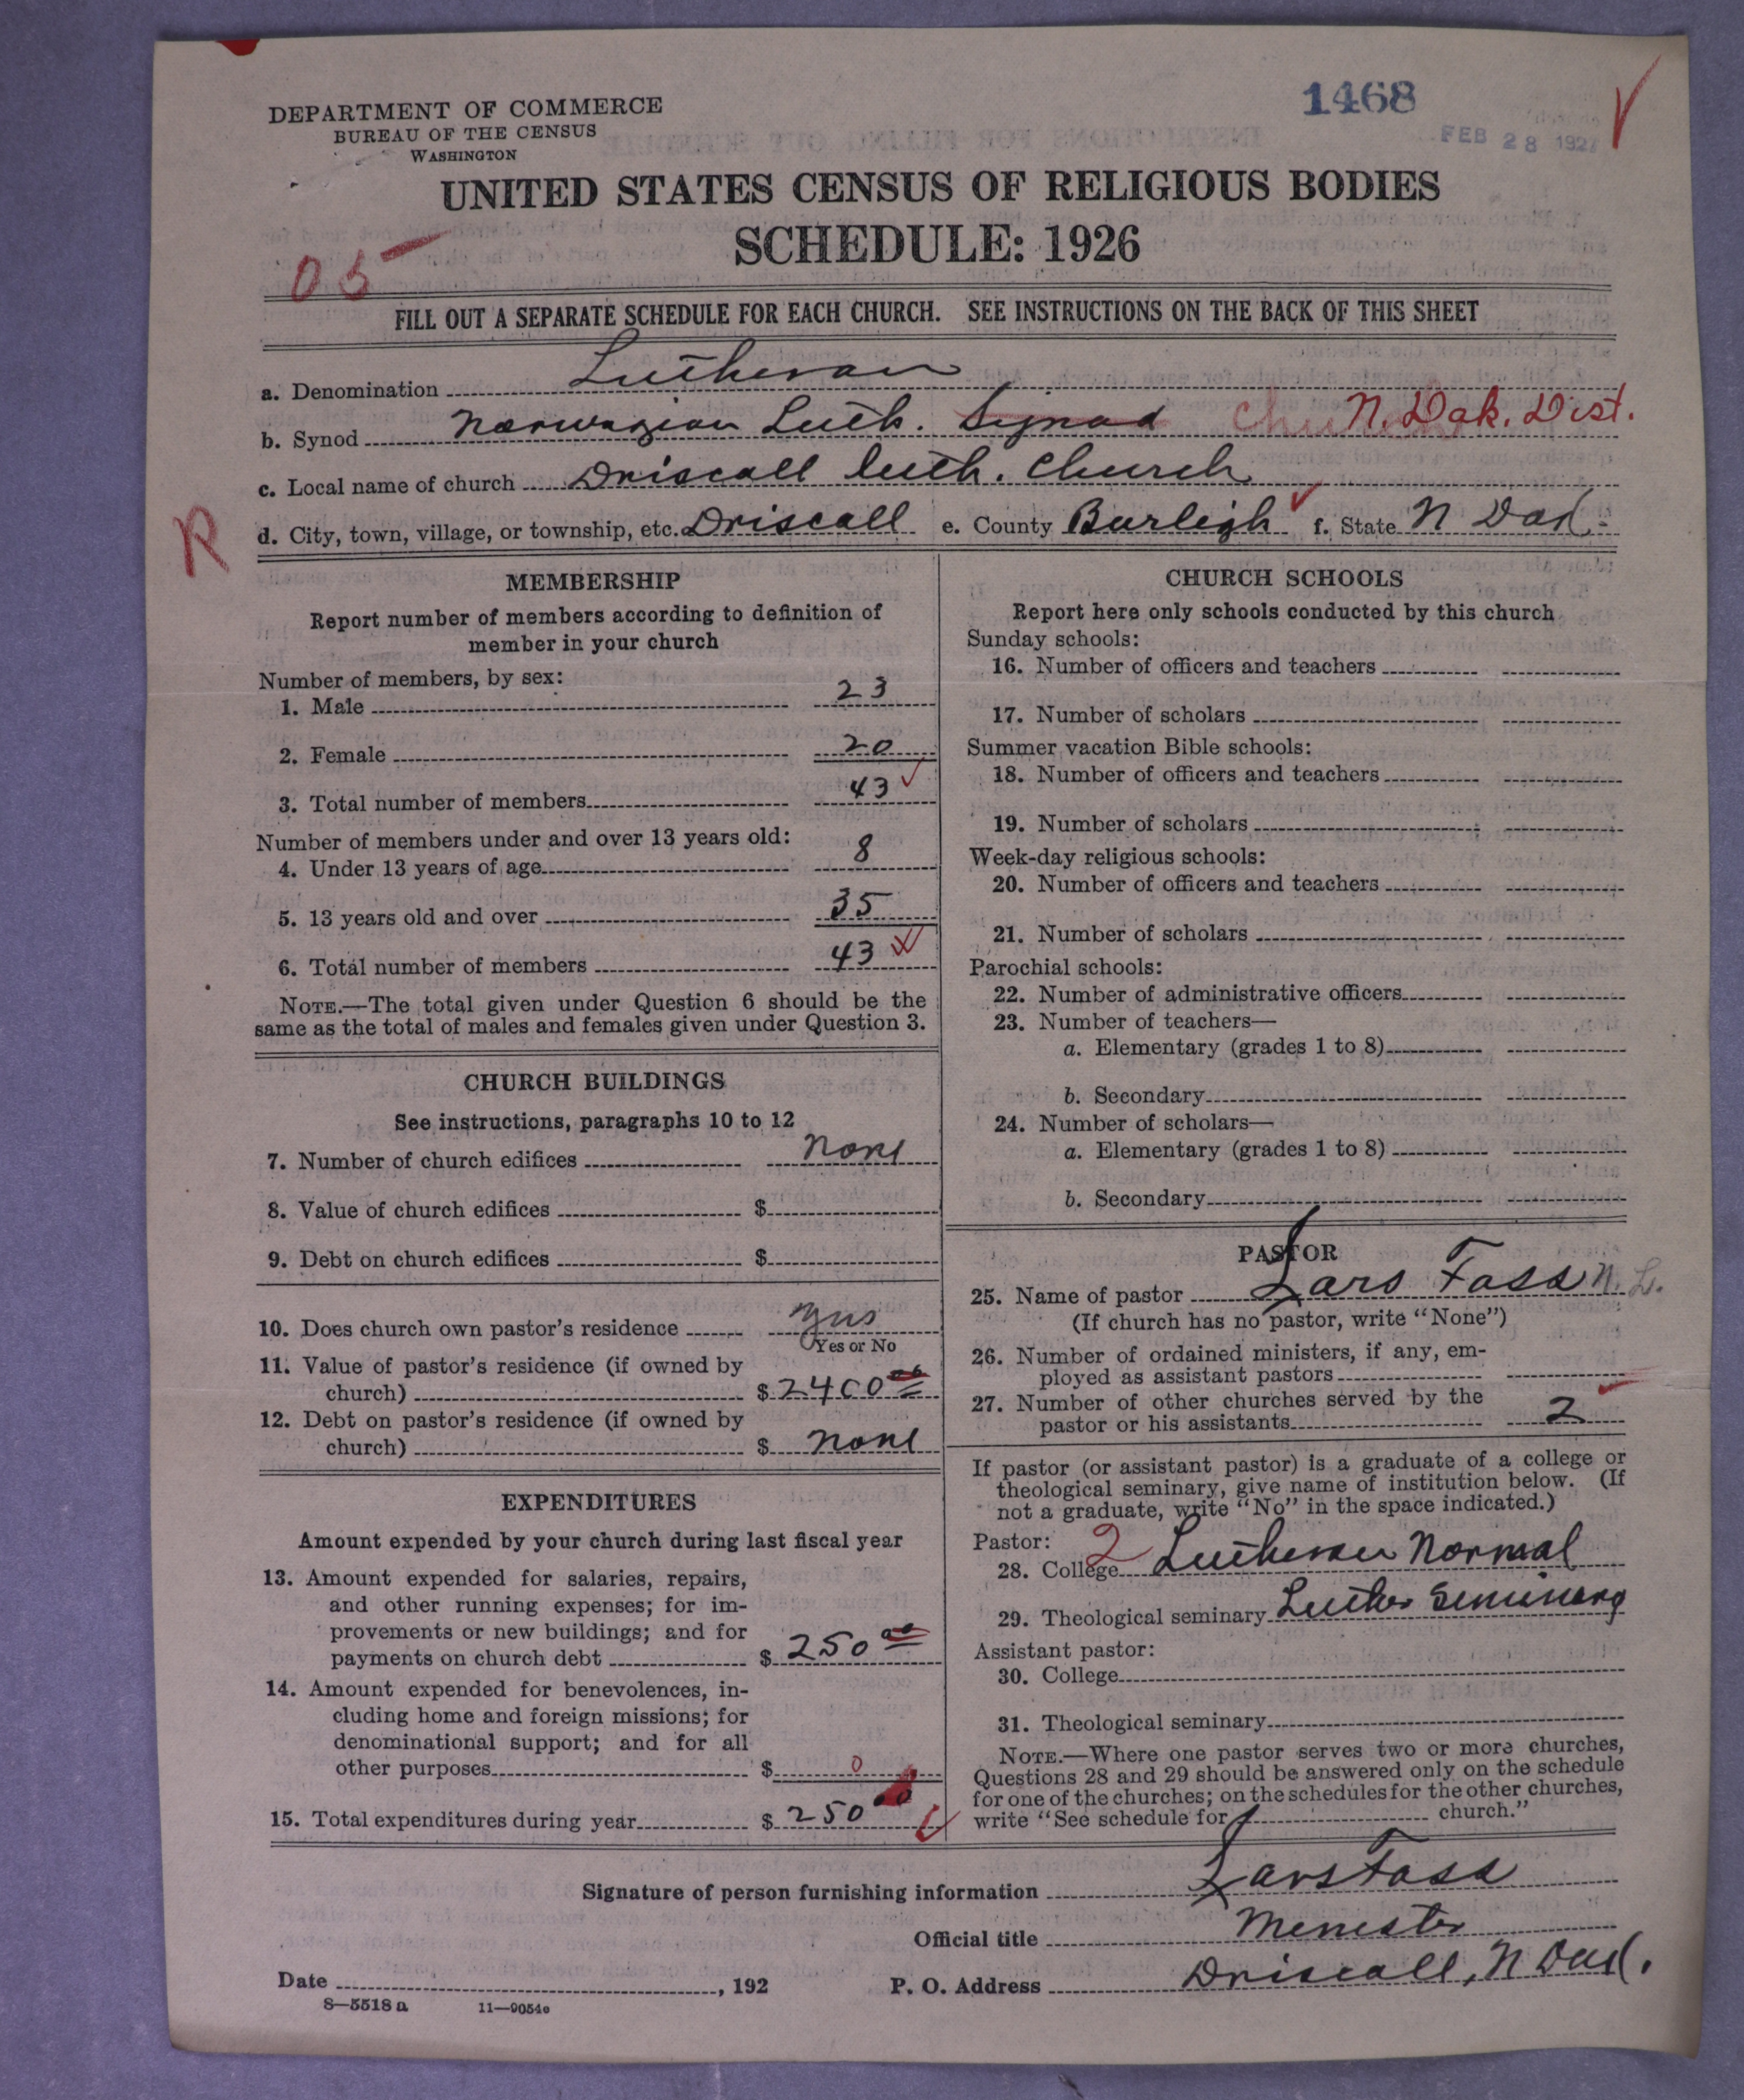 1468
FEB 28 1927
DEPARTMENT OF COMMERCE
BUREAU OF THE CENSUS
WASHINGTON
UNITED STATES CENSUS OF RELIGIOUS BODIES
SCHEDULE: 1926
05
FILL OUT A SEPARATE SCHEDULE FOR EACH CHURCH. SEE INSTRUCTIONS ON THE BACK OF THIS SHEET
a. Denomination Lutheran
b. Synod Norwegian Luth. Synod Church N. Dak. Dist.
c. Local name of church Driscoll Luth. Church
R
d. City, town, village, or township, etc. Driscoll e. County Burleigh f. State N Dak.
MEMBERSHIP
Report number of members according to definition of
member in your church
Number of members, by sex:
1. Male 23
2. Female 20
3. Total number of members 43
Number of members under and over 13 years old:
4. Under 13 years of age 8
5. 13 years old and over 35
6. Total number of members 43
NOTE.—The total given under Question 6 should be the
same as the total of males and females given under Question 3.
CHURCH BUILDINGS
See instructions, paragraphs 10 to 12
7. Number of church edifices None
8. Value of church edifices $
9. Debt on church edifices $
10. Does church own pastor's residence yes
Yes or No
11. Value of pastor's residence (if owned by
church) $ 2400 00
12. Debt on pastor's residence (if owned by
church) $ none
EXPENDITURES
Amount expended by your church during last fiscal year
13. Amount expended for salaries, repairs,
and other running expenses; for im-
provements or new buildings; and for
payments on church debt $ 250 00
14. Amount expended for benevolences, in-
cluding home and foreign missions; for
denominational support; and for all
other purposes $ 0
15. Total expenditures during year $ 250 00
CHURCH SCHOOLS
Report here only schools conducted by this church
Sunday schools:
16. Number of officers and teachers
17. Number of scholars
Summer vacation Bible schools:
18. Number of officers and teachers
19. Number of scholars
Week-day religious schools:
20. Number of officers and teachers
21. Number of scholars
Parochial schools:
22. Number of administrative officers
23. Number of teachers—
a. Elementary (grades 1 to 8)
b. Secondary
24. Number of scholars—
a. Elementary (grades 1 to 8)
b. Secondary
PASTOR
25. Name of pastor Lars Foss N. L.
(If church has no pastor, write "None")
26. Number of ordained ministers, if any, em-
ployed as assistant pastors
27. Number of other churches served by the
pastor or his assistants 2
If pastor (or assistant pastor) is a graduate of a college or
theological seminary, give name of institution below. (If
not a graduate, write "No" in the space indicated.)
Pastor:
28. College 2 Lutheran Normal
29. Theological seminary Luther Seminary
Assistant pastor:
30. College
31. Theological seminary
NOTE.—Where one pastor serves two or more churches,
Questions 28 and 29 should be answered only on the schedule
for one of the churches; on the schedules for the other churches,
write "See schedule for church."
Signature of person furnishing information Lars Foss
Official title Menester
Date , 192 P. O. Address Driscoll, N Dak.
8—5518 a 11—9054c